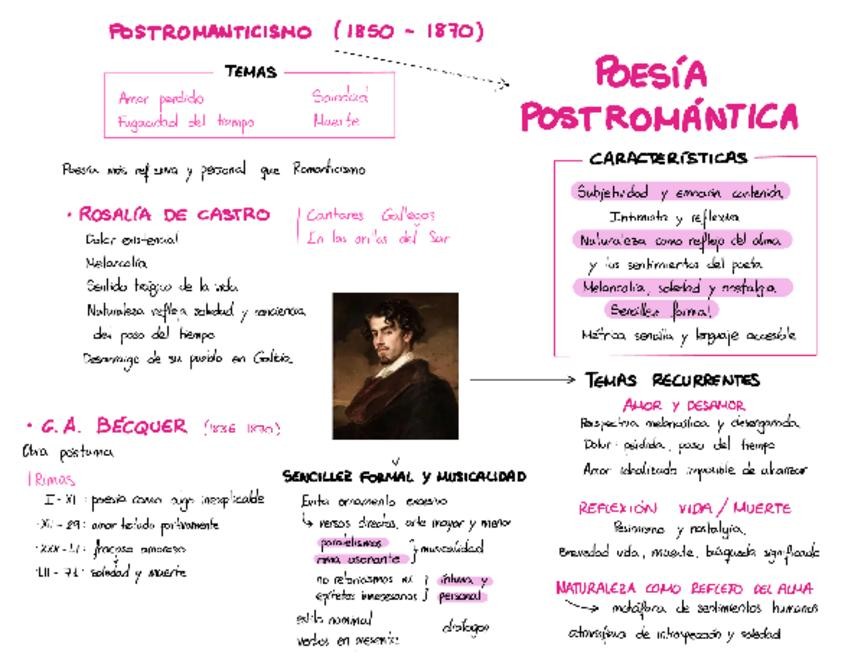 POSTROMANTICISMO (1850 - 1870)
TEMAS
Amor perdido
Soledad
Fugacidad del tiempo
Muerte
Poesía más reflexiva y personal que Romanticismo
• ROSALÍA DE CASTRO
Cantares Gallegos
En las orillas del Sar
Dolor existencial
Melancolía
Sentido trágico de la vida
Naturaleza refleja soledad y conciencia
del paso del tiempo
Desarraigo de su pueblo en Galicia
• G.A. BÉCQUER (1836 1870)
Obra póstuma
Rimas
I - XI : poesía como algo inexplicable
XII - 29 : amor tratado positivamente
XXX - LI : fracaso amoroso
LII - 71 : soledad y muerte
SENCILLEZ FORMAL Y MUSICALIDAD
Evita ornamento excesivo
↳ versos directos, arte mayor y menor
paralelismos
rima asonante
} musicalidad
no retoricismos ni
epítetos innecesarios
} íntima y
personal
estilo nominal
verbos en presente
diálogos
POESÍA
POSTROMÁNTICA
CARACTERÍSTICAS
Subjetividad y emoción contenida
Intimista y reflexiva
Naturaleza como reflejo del alma
y los sentimientos del poeta
Melancolía, soledad y nostalgia
Sencillez formal
Métrica sencilla y lenguaje accesible
TEMAS RECURRENTES
AMOR Y DESAMOR
Perspectiva melancólica y desengañada
Dolor : pérdida, paso del tiempo
Amor idealizado imposible de alcanzar
REFLEXIÓN VIDA / MUERTE
Pesimismo y nostalgia,
Brevedad vida, muerte, búsqueda significado
NATURALEZA COMO REFLEJO DEL ALMA
→ metáfora de sentimientos humanos
atmósfera de introspección y soledad